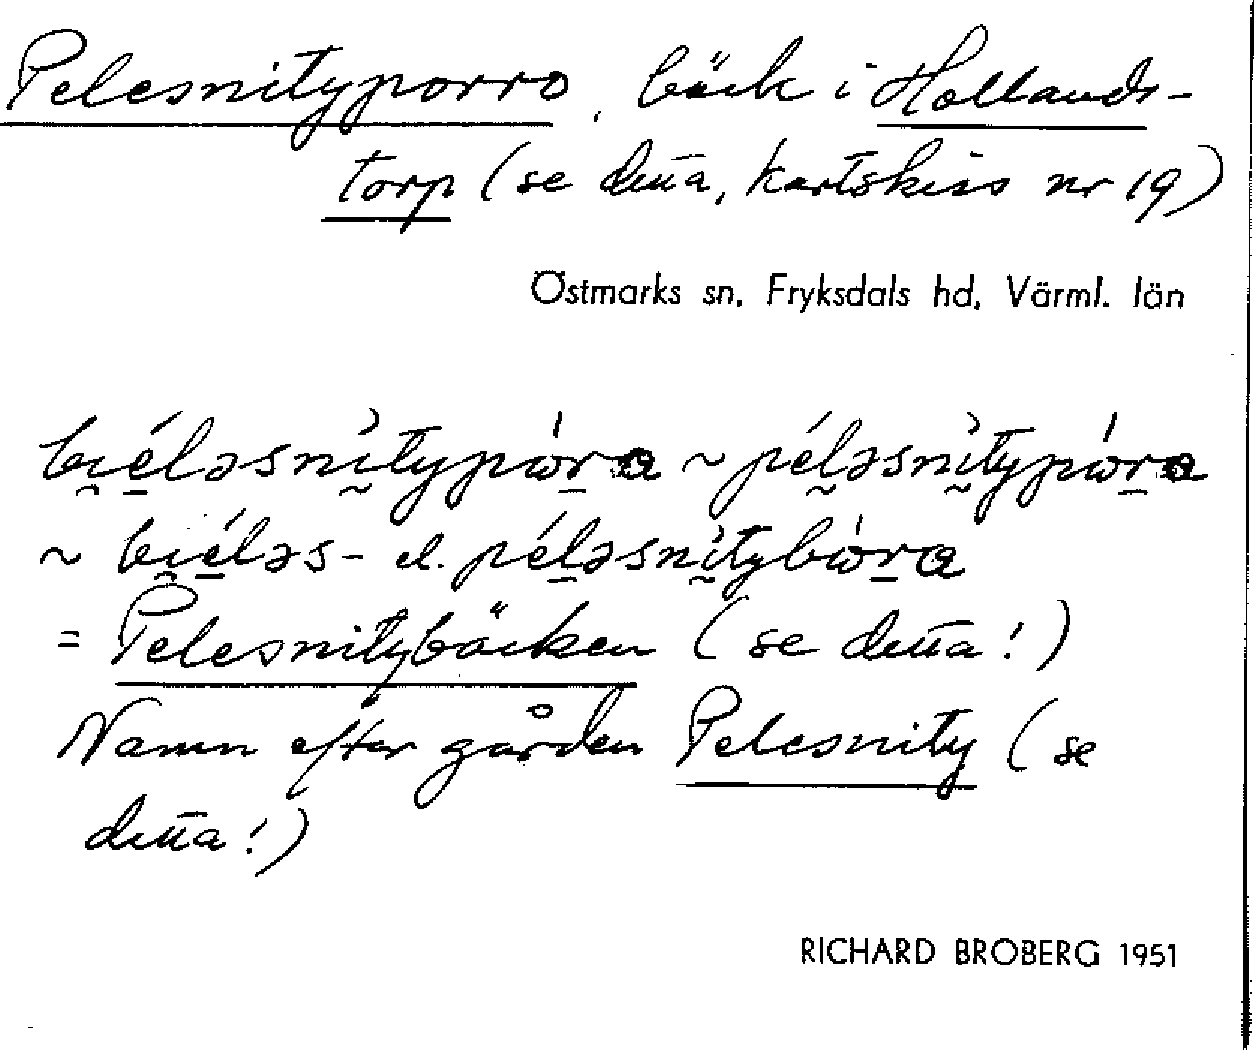 Pelesnityporro, bäck i Hollands-
torp (se detta, kartskiss nr 19)
Östmarks sn, Fryksdals hd, Värml. län
bi̯éləsnìtypóra ~ péləsnìtypóra
~ bi̯éləs- el. péləsnìtybóra
= Pelesnitybäcken (se detta!)
Namn efter gården Pelesnity (se
detta!)
RICHARD BROBERG 1951